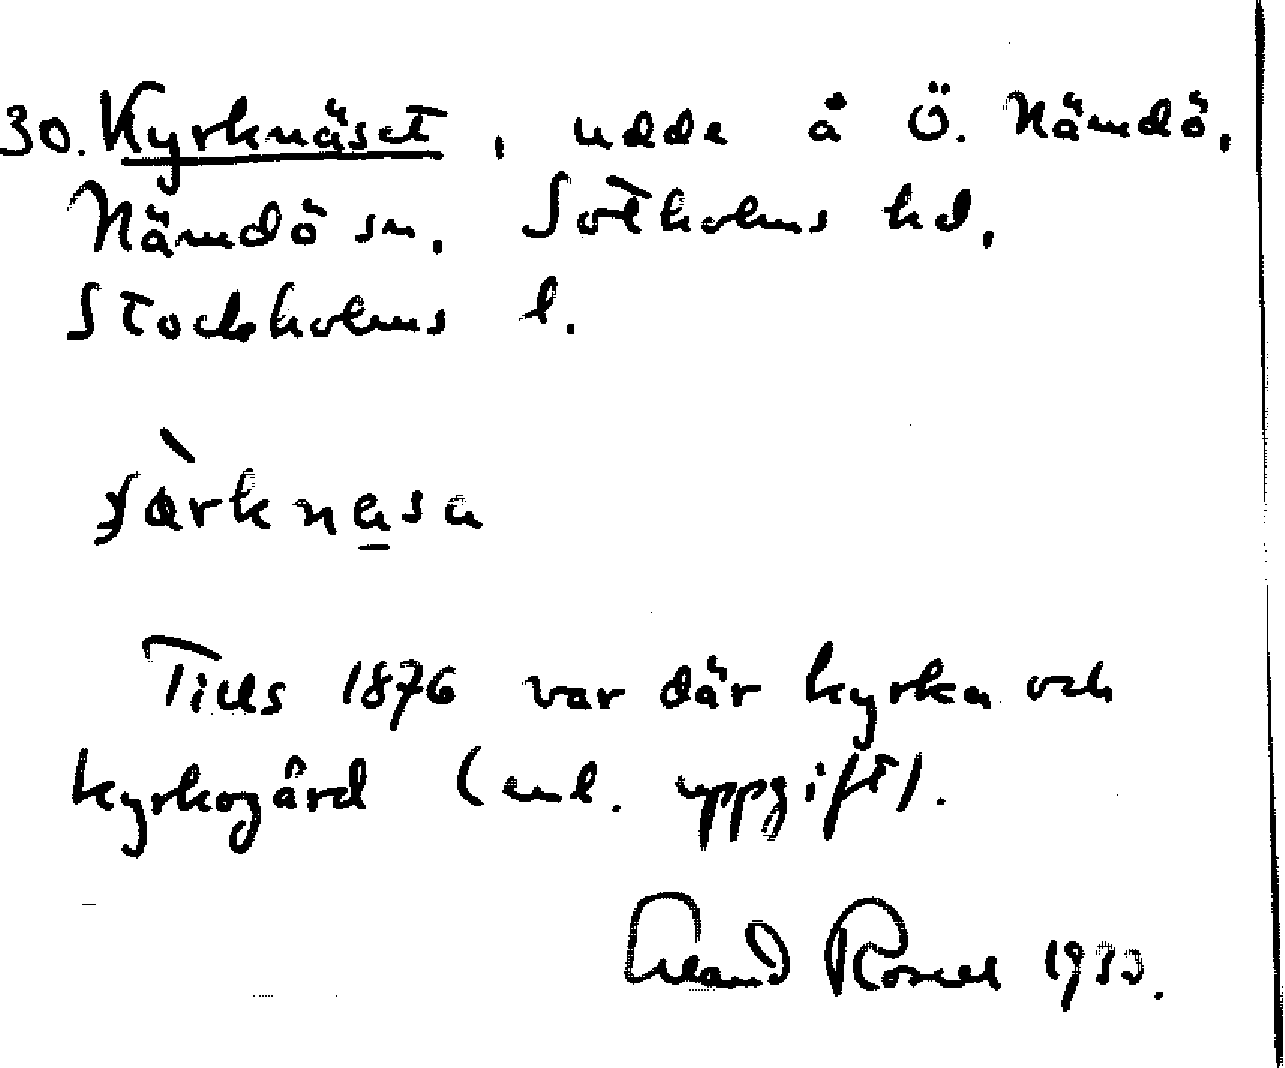 30. Kyrknäset, udde å Ö. Nämdö,
Nämdö sn, Sotholms hd,
Stockholms l.
Tills 1876 var där kyrka och
kyrkogård (enl. uppgift).
1933.